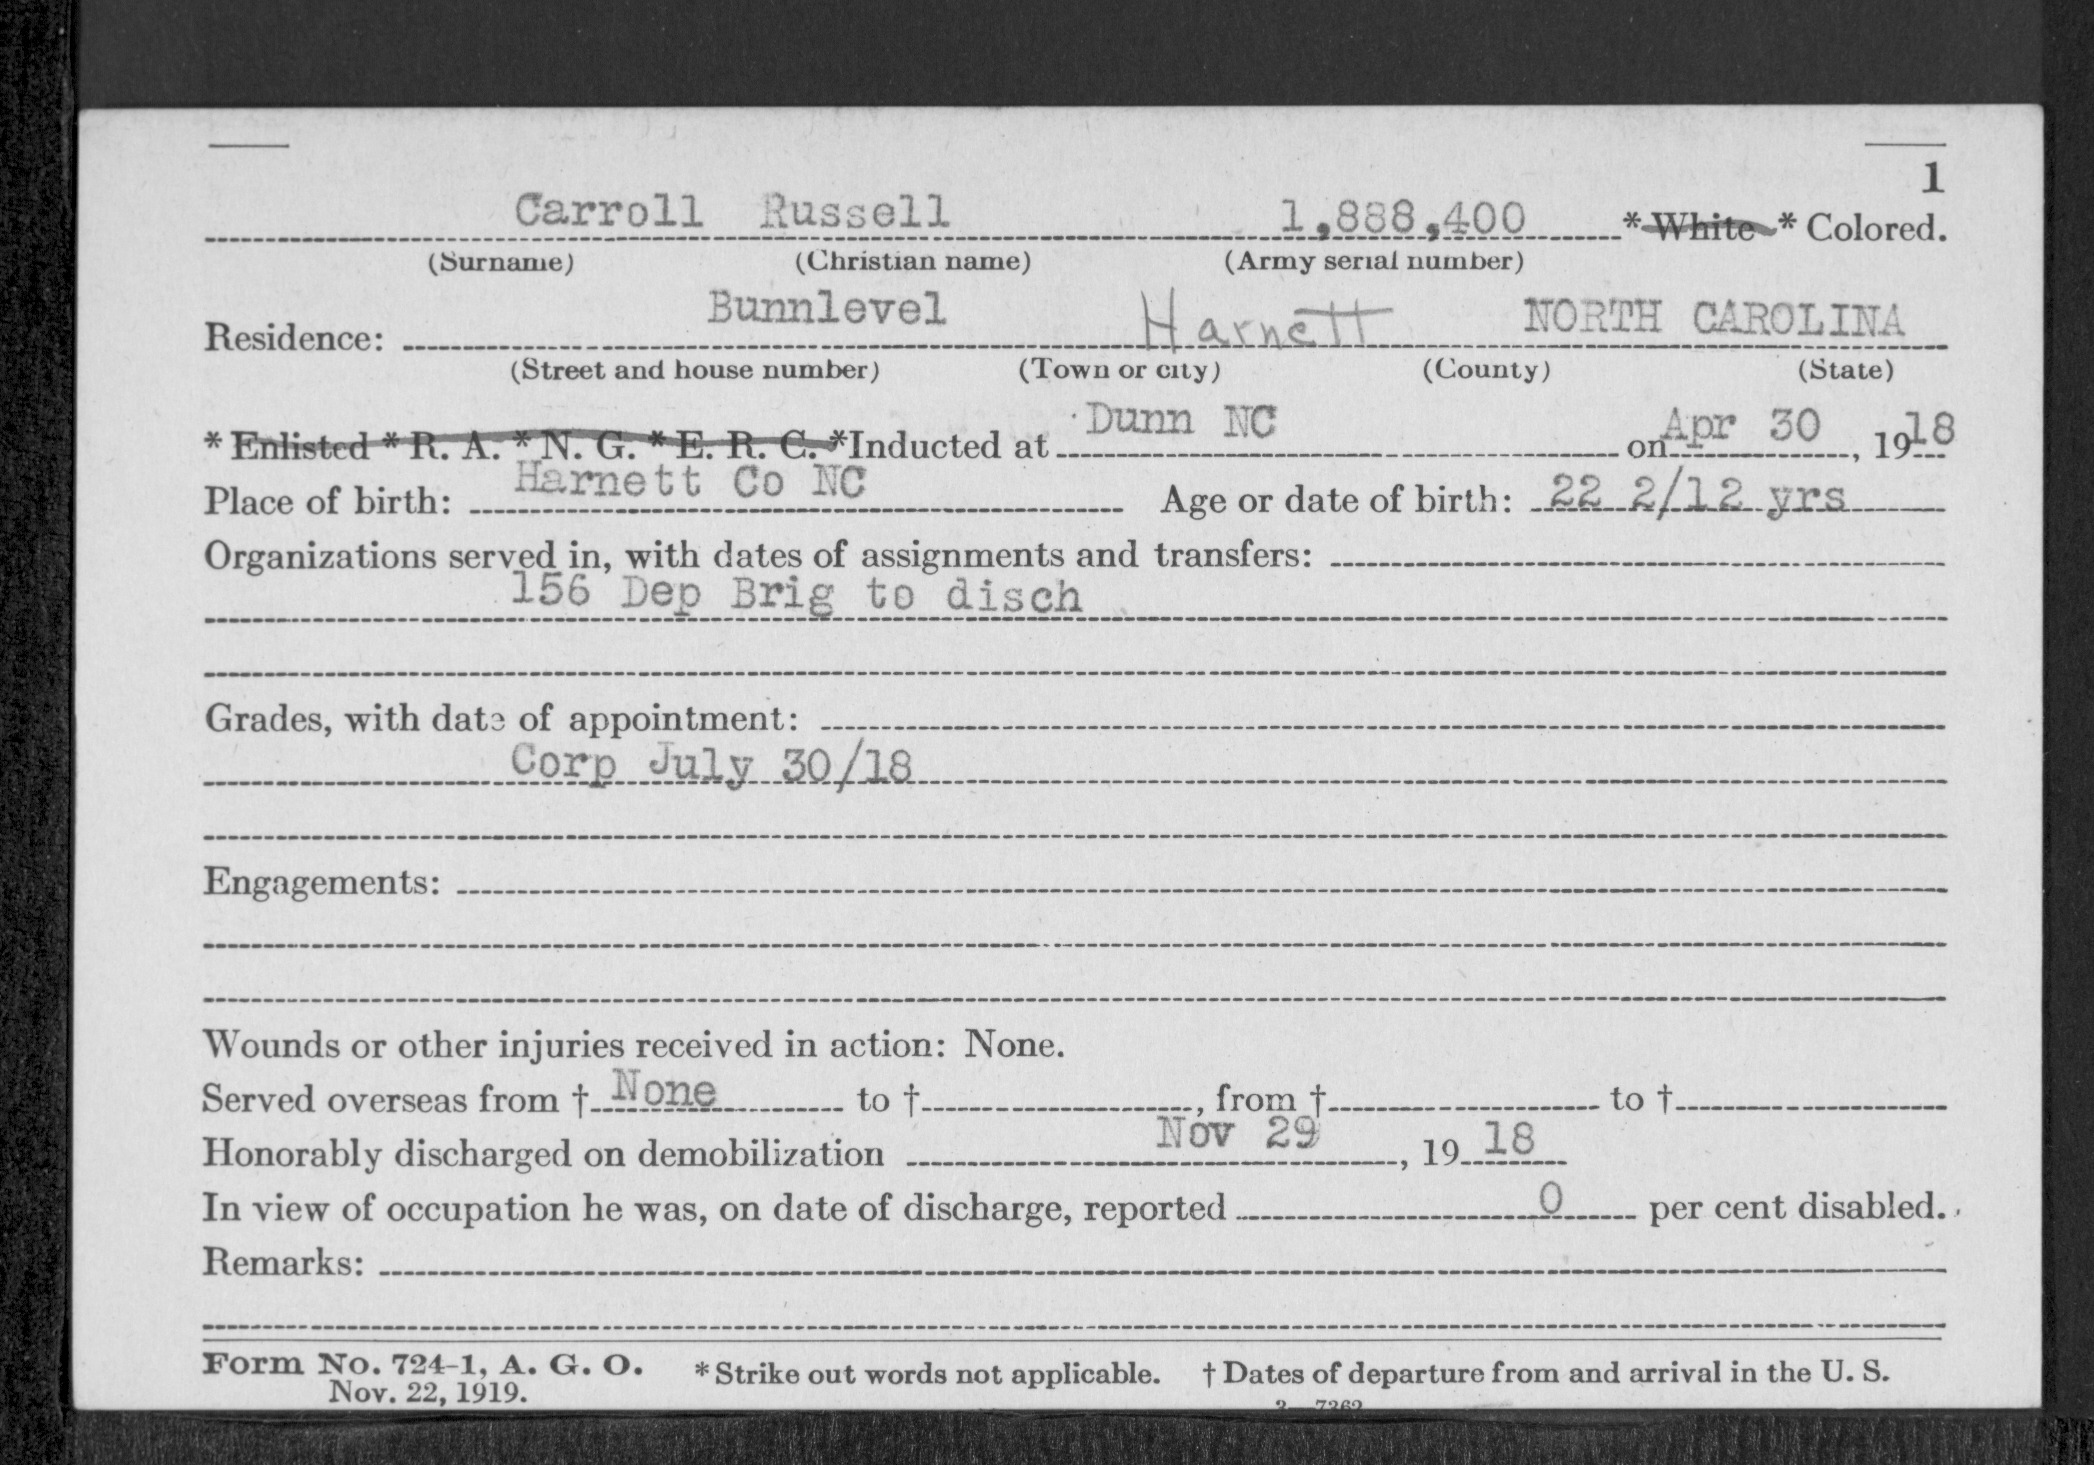 1
Carroll Russell 1,888,400 * White * Colored.
(Surname) (Christian name) (Army serial number)
Residence: Bunnlevel Harnett NORTH CAROLINA
(Street and house number) (Town or city) (County) (State)
* Enlisted * R. A. * N. G. * E. R. C. * Inducted at Dunn NC on Apr 30, 1918
Place of birth: Harnett Co NC Age or date of birth: 22 2/12 yrs
Organizations served in, with dates of assignments and transfers:
156 Dep Brig to disch
Grades, with date of appointment:
Corp July 30/18
Engagements:
Wounds or other injuries received in action: None.
Served overseas from † None to †, from † to †
Honorably discharged on demobilization Nov 29, 19 18
In view of occupation he was, on date of discharge, reported 0 per cent disabled.
Remarks:
Form No. 724-1, A. G. O. * Strike out words not applicable. † Dates of departure from and arrival in the U. S.
Nov. 22, 1919.
3—7362